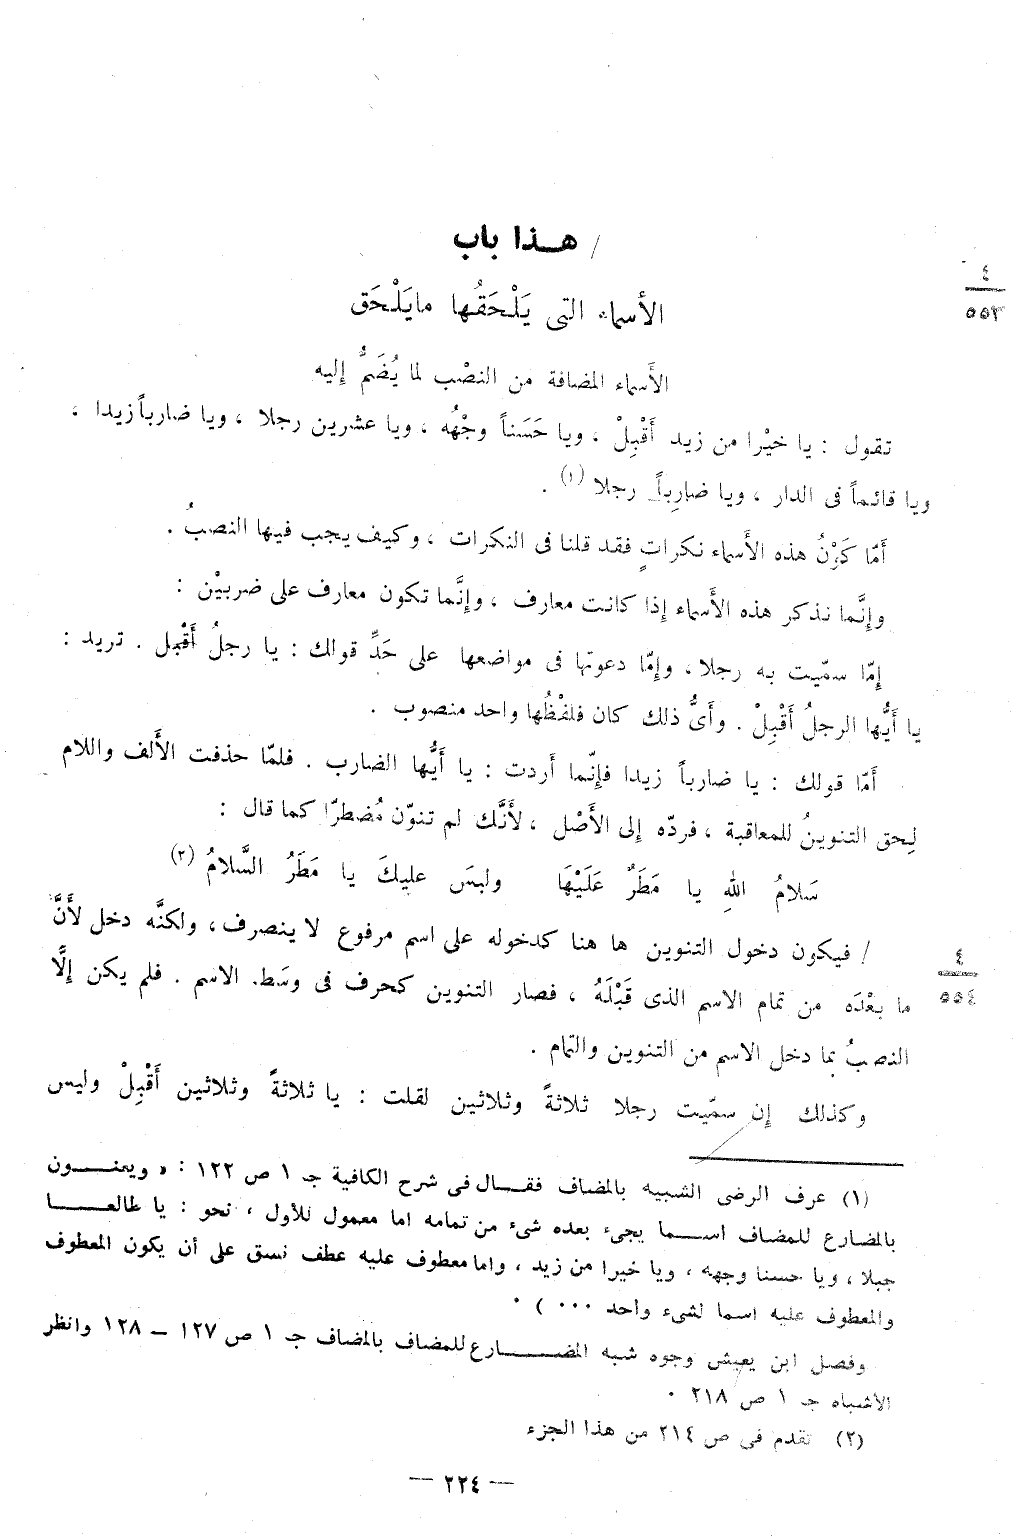 / هـــذا باب
٤
٥٥٣
الأسماء التى يَلْحَقُها مايَلْحَق
الأَسماء المضافة من النصْب لما يُضَمُّ إليه
تقول : يا خيْرا من زيد أَقْبِلْ ، ويا حَسَناً وجْهُه ، ويا عشرين رجلا ، ويا ضارباً زيدا ،
ويا قائماً فى الدار ، ويا ضارِباً رجلا (١) .
أَمّا كَوْنُ هذه الأَسماء نكراتٍ فقد قلنا فى النكرات ، وكيف يجب فيها النصبُ .
وإِنَّما نذكر هذه الأَسماء إذا كانت معارف ، وإِنَّما تكون معارف على ضربيْن :
إِمّا سمّيت به رجلا ، وإِمّا دعوتها فى مواضعها على حَدِّ قولك : يا رجلُ أَقْبِل . تريد :
يا أَيُّها الرجلُ أَقْبِلْ . وأَىُّ ذلك كان فلفْظُها واحد منصوب .
أَمّا قولك : يا ضارباً زيدا فإِنّما أردت : يا أَيُّها الضارب . فلمّا حذفت الأَلف واللام
لِحق التنوينُ للمعاقبة ، فردّه إلى الأَصْل ، لأَنَّك لم تنوّن مُضطرّا كما قال :
سَلامُ اللهِ يا مَطَرٌ عَلَيْهَا وليسَ عليكَ يا مَطَرُ السَّلامُ (٢)
/ فيكون دخول التنوين ها هنا كدخوله على اسم مرفوع لا ينصرف ، ولكنَّه دخل لأَنَّ
٤
٥٥٤
ما بعْدَه من تمام الاسم الذى قَبْلَهُ ، فصار التنوين كحرف فى وسَط. الاسم . فلم يكن إِلَّا
النصبُ بما دخل الاسم من التنوين والتمام .
وكذلك إِن سمّيت رجلا ثلاثةً وثلاثين لقلت : يا ثلاثةً وثلاثين أَقْبِلْ وليس
(١) عرف الرضى الشبيه بالمضاف فقـــال فى شرح الكافية جـ ١ ص ١٢٢ : « ويعنـــون
بالمضارع للمضاف اســـما يجىء بعده شىء من تمامه اما معمول للأول ، نحو : يا طالعـــا
جبلا ، ويا حسنا وجهه ، ويا خيرا من زيد ، واما معطوف عليه عطف نسق على أن يكون المعطوف
والمعطوف عليه اسما لشىء واحد ٠٠٠ ) ٠
وفصل ابن يعيش وجوه شبه المضـــارع للمضاف بالمضاف جـ ١ ص ١٢٧ – ١٢٨ وانظر
الاشباه جـ ١ ص ٢١٨ ٠
(٢) تقدم فى ص ٢١٤ من هذا الجزء
— ٢٢٤ —